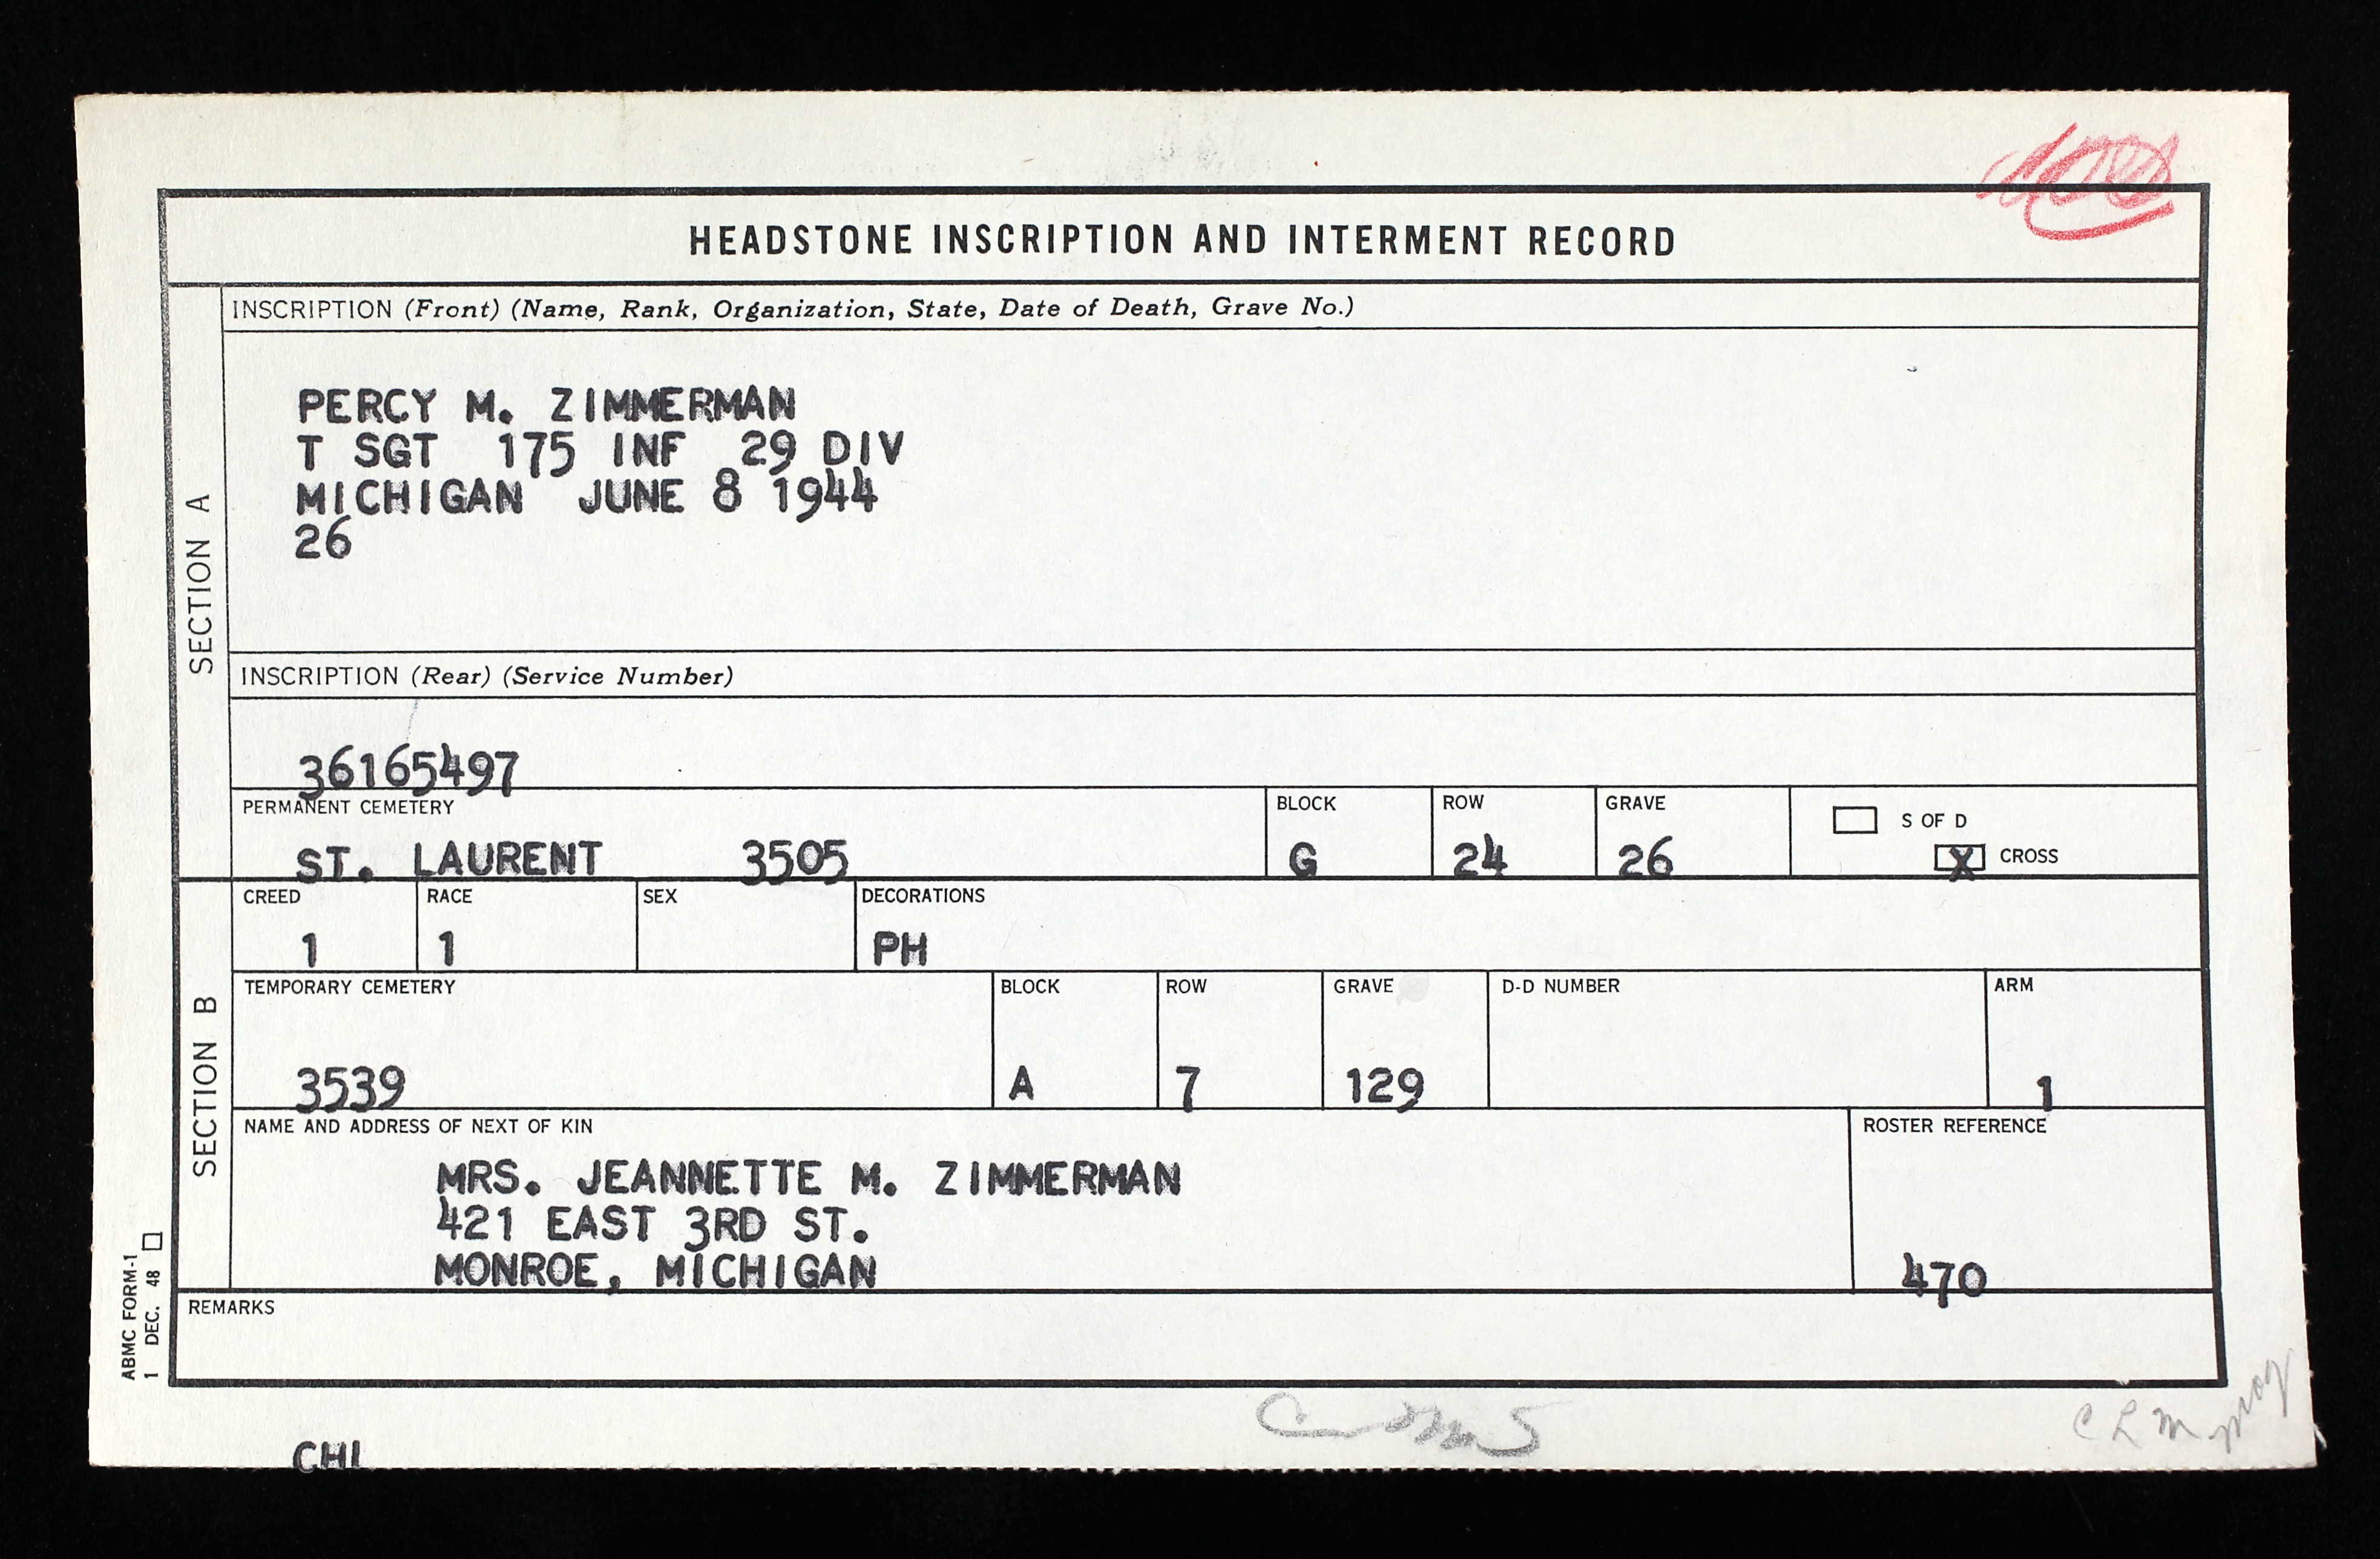 HEADSTONE INSCRIPTION AND INTERMENT RECORD
SECTION A
INSCRIPTION (Front) (Name, Rank, Organization, State, Date of Death, Grave No.)
PERCY M. ZIMMERMAN
T SGT 175 INF 29 DIV
MICHIGAN JUNE 8 1944
26
INSCRIPTION (Rear) (Service Number)
36165497
PERMANENT CEMETERY BLOCK ROW GRAVE S OF D
ST. LAURENT 3505 G 24 26 X CROSS
SECTION B
CREED RACE SEX DECORATIONS
1 1 PH
TEMPORARY CEMETERY BLOCK ROW GRAVE D-D NUMBER ARM
3539 A 7 129 1
NAME AND ADDRESS OF NEXT OF KIN ROSTER REFERENCE
MRS. JEANNETTE M. ZIMMERMAN
421 EAST 3RD ST.
MONROE, MICHIGAN 470
REMARKS
ABMC FORM-1
1 DEC. 48
CHI